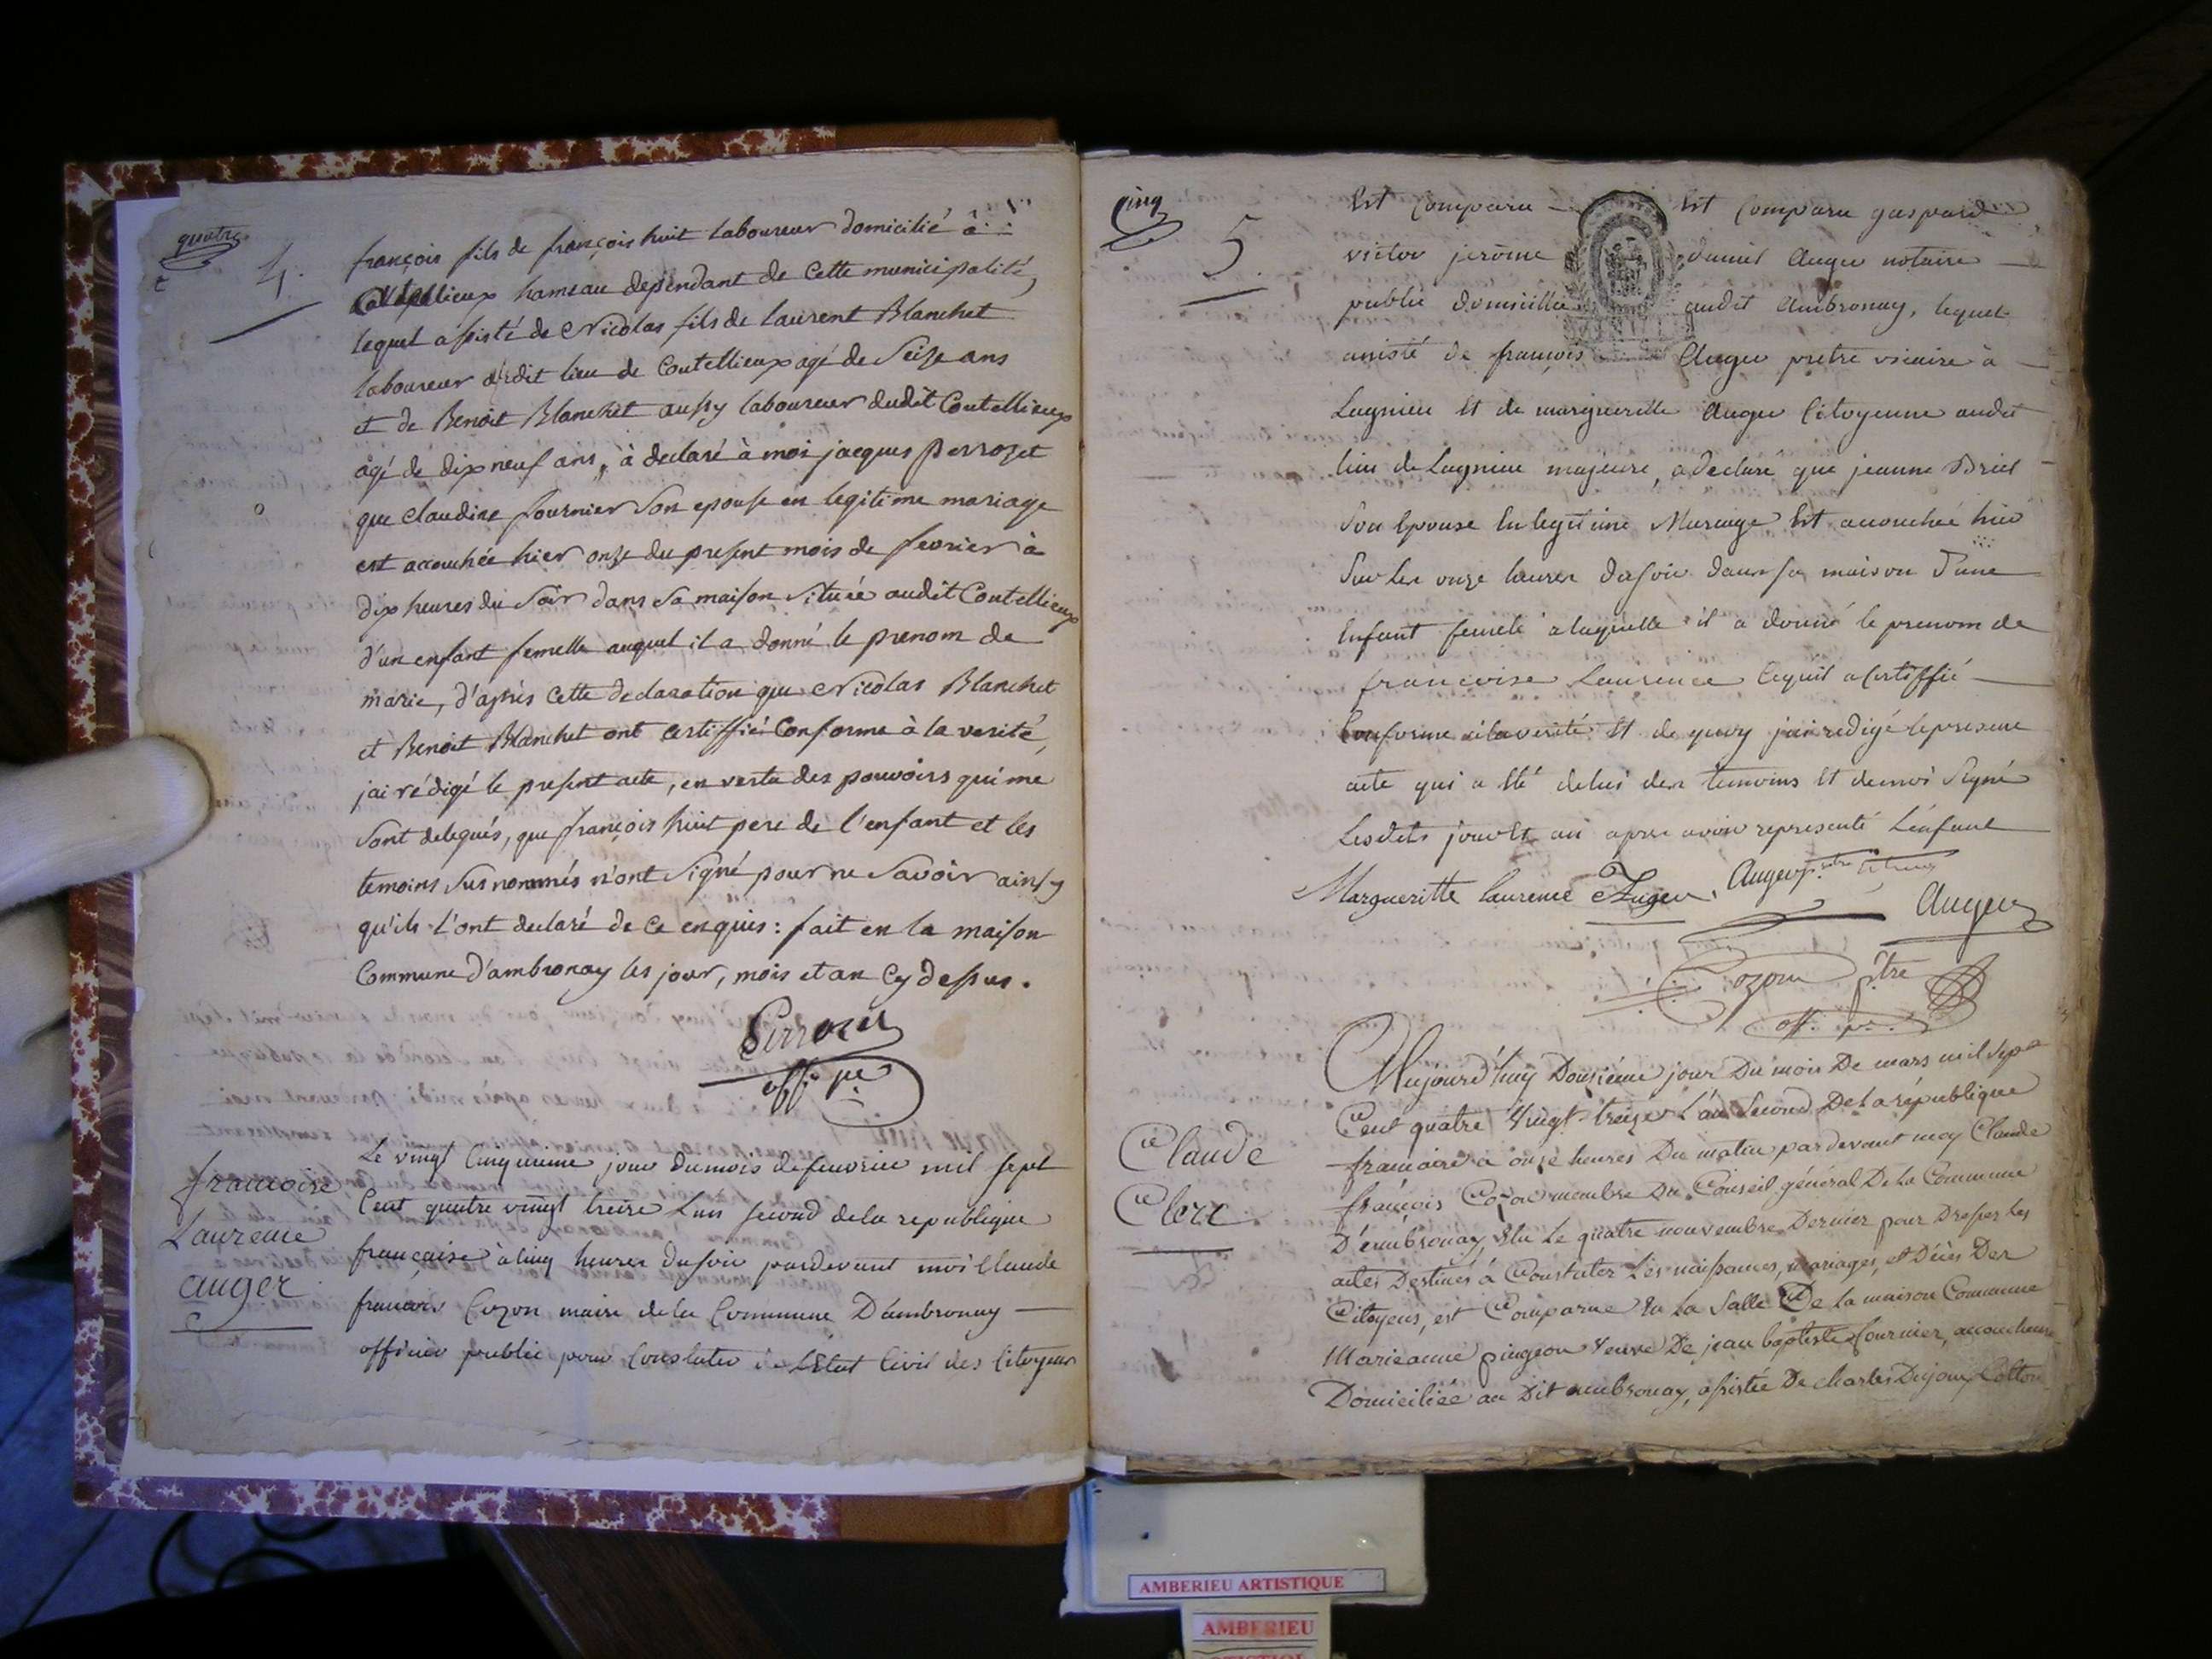 quatre
4.
françois fils de françois huit laboureur domicilié à
Coutellieux hameau dependant de Cette municipalité,
lequel assisté de Nicolas fils de laurent Blanchet
laboureur dudit lieu de Coutellieux agé de Seize ans
et de Benoit Blanchet aussy laboureur dudit Coutellieux
âgé de dix neuf ans, à declaré à moi jacques perrozet
que claudine fournier Son epouse en legitime mariage
est accouchée hier onze du present mois de fevrier à
dix heures du Soir dans Sa maison Située audit Coutellieux
d'un enfant femelle auquel il a donné le prenom de
marie, d'après Cette declaration que Nicolas Blanchet
et Benoit Blanchet ont certiffié Conforme à la verité,
jai rédigé le present acte, en vertu des pouvoirs qui me
Sont delegués, que françois huit pere de l'enfant et les
temoins Susnommés n'ont Signé pour ne Savoir ainsy
qu'ils l'ont declaré de Ce enquis : fait en la maison
Commune d'ambronay les jour, mois et an Cy dessus.
Perrozet
off. pu.
francoise
Laurence
auger
Le vingt Cinquieme jour du mois de fevrier mil sept
Cent quatre vingt treize L'an second de la republique
française à Cinq heures du soir pardevant moi Claude
francois Cozon maire de la Commune D'ambronay —
officier public pour Constater L'Etat Civil des Citoyens
Cinq
5.
Est Comparu — Est Comparu gaspard
victor jerôme daniel Auger notaire —
public domicillié audit Ambronay, lequel
assisté de francois Auger pretre vicaire à —
Lagnieu Et de marguerille Auger Citoyenne audit
lieu de Lagnieu majeure, a declaré que jeanne Bricl
Son Epouse En legitime Mariage Est accouchée hier
Sur les onze heures du soir dans sa maison d'une
Enfant femele a laquelle il a donné le prenom de
francoise Laurence Ce quil a Certiffié —
Conforme à la verité Et de quoy j'ai redigé le present
acte qui a Eté de lui des temoins Et de moi Signé
Lesdits jour Et an apres avoir representé L'enfant
Margueritte laurence Auger, Auger ptre
Auger
Cozon ptre
off. pu.
Claude
Clerc
Aujourd'huy Douzieme jour Du mois De mars mil Sept
Cent quatre Vingt-treize L'an Second De la république
francaise à onze heures Du matin pardevant moy Claude
françois Cozon membre Du Conseil général De la Commune
D'ambronay, Elu le quatre novembre Dernier pour Dresser les
actes Destinés à Constater Les naissances, mariages, et Décès Des
Citoyens, est Comparue En la Salle De la maison Commune
Marieanne pingeon Veuve De jean baptiste fournier, accoucheuse
Domiciliée au Dit ambronay, assistée De charles Dujoux Cotton
AMBERIEU ARTISTIQUE
AMBERIEU